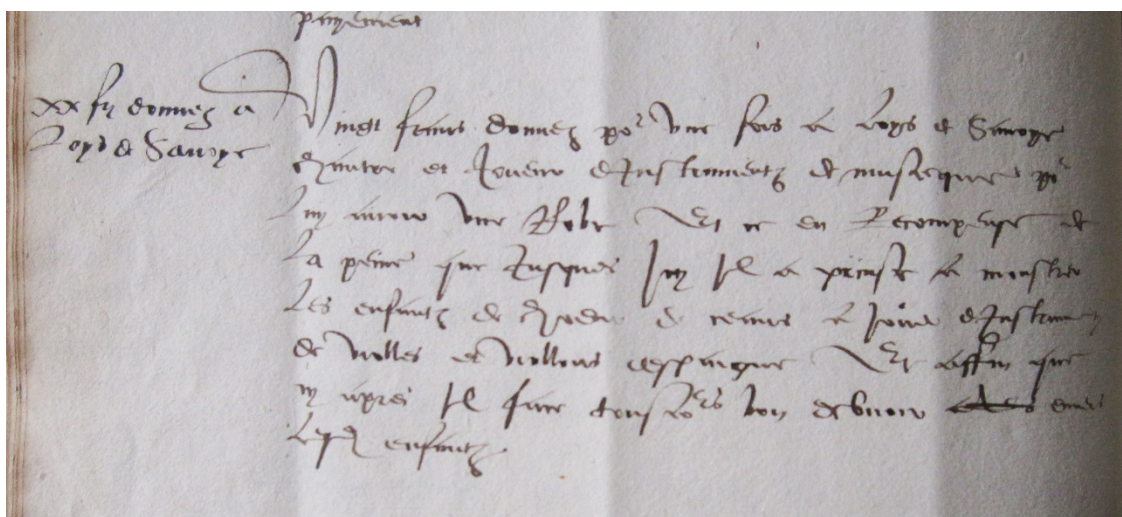 payement
xx fr donnez a
Loys de Savoye
Vingt frans donnez po^r une fois a Loys de Savoye
chantre et Joueur d'Instrumentz de musicque po^r
luy avoir une Robe Et ce en Recompense de
la peine que Jusques Icy Il a prinse a monstrer
les enfantz de cueur de ceans a Jouer d'Instrumens
de violles et viollons Et affin que
cy apres Il face tousio^rs bon debvoir envers
lesd enfantz